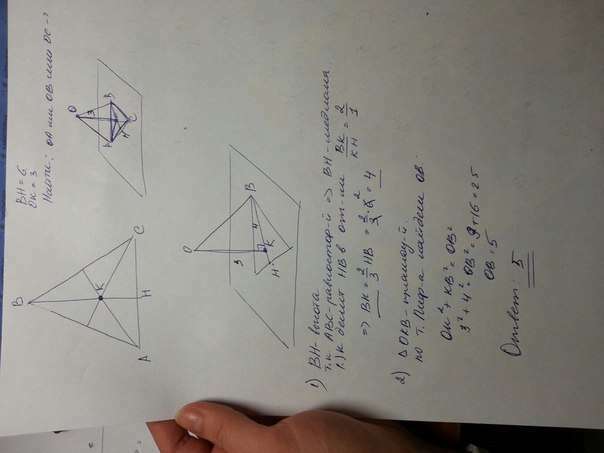 BH = 6
OK = 3
Найти: OA или OB или OC - ?
B
K
C
A
H
O
3
B
K
A
H
C
O
3
B
4
K
H
1) BH - высота
т.к. ABC - равностор-й => BH - медиана
т.) K делит HB в от-ии BK/KH = 2/1
=> BK = 2/3 HB = 2/3 · 6 = 4
2) △OKB - прямоуг-й.
по т. Пиф-а найдем OB:
OK² + KB² = OB²
3² + 4² = OB² = 9 + 16 = 25
OB = 5
Ответ: 5